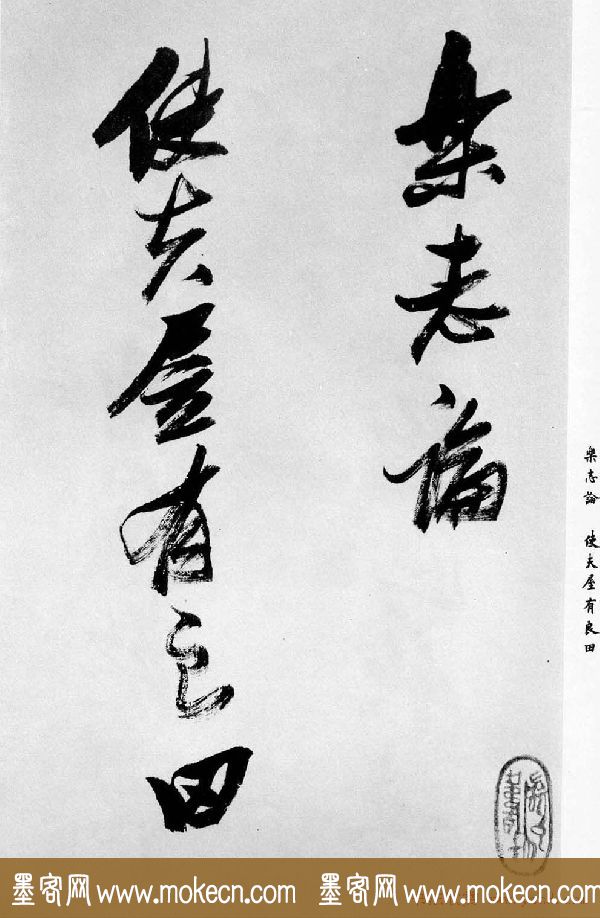 樂志論
使夫屋有良田
樂志論 使夫屋有良田
墨客网 www.mokecn.com 墨客网 www.mokecn.com